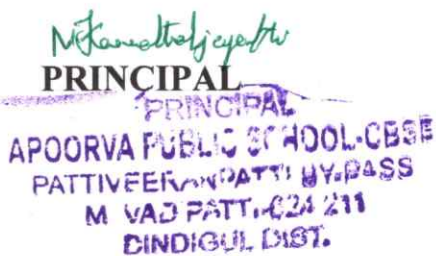 PRINCIPAL
PRINCIPAL
APOORVA PUBLIC SCHOOL-CBSE
PATTIVEERANPATTI BY-PASS
M VADIPATTI-624 211
DINDIGUL DIST.